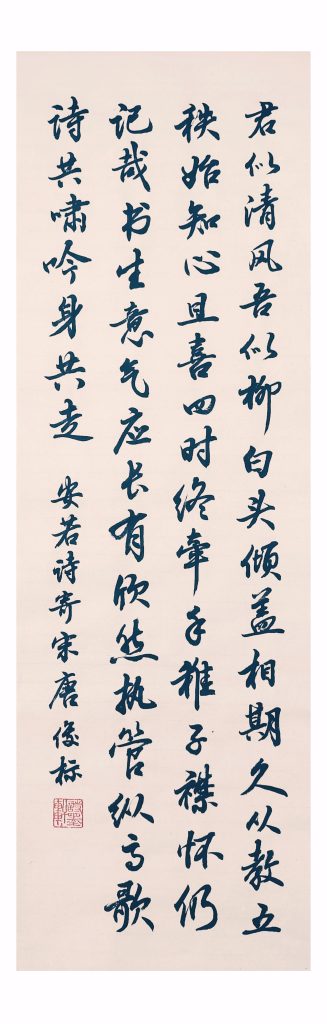 君似清风吾似柳白头倾盖相期久从教五
秩始知心且喜四时终牵手稚子襟怀仍
记哉书生意气应长有欣然执管纵高歌
诗共啸吟身共走 安若诗寄宋唐俊标